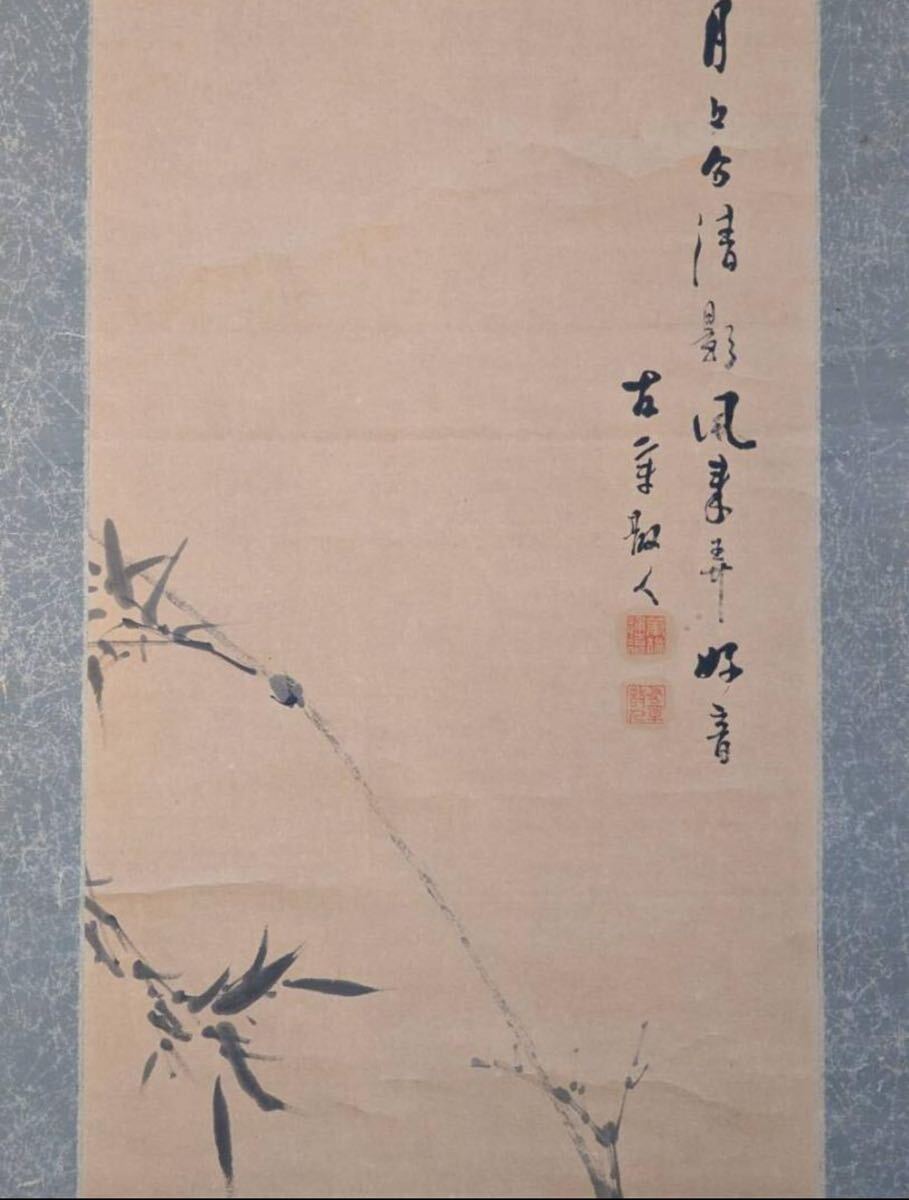 月上分清影風来弄好音
古散人